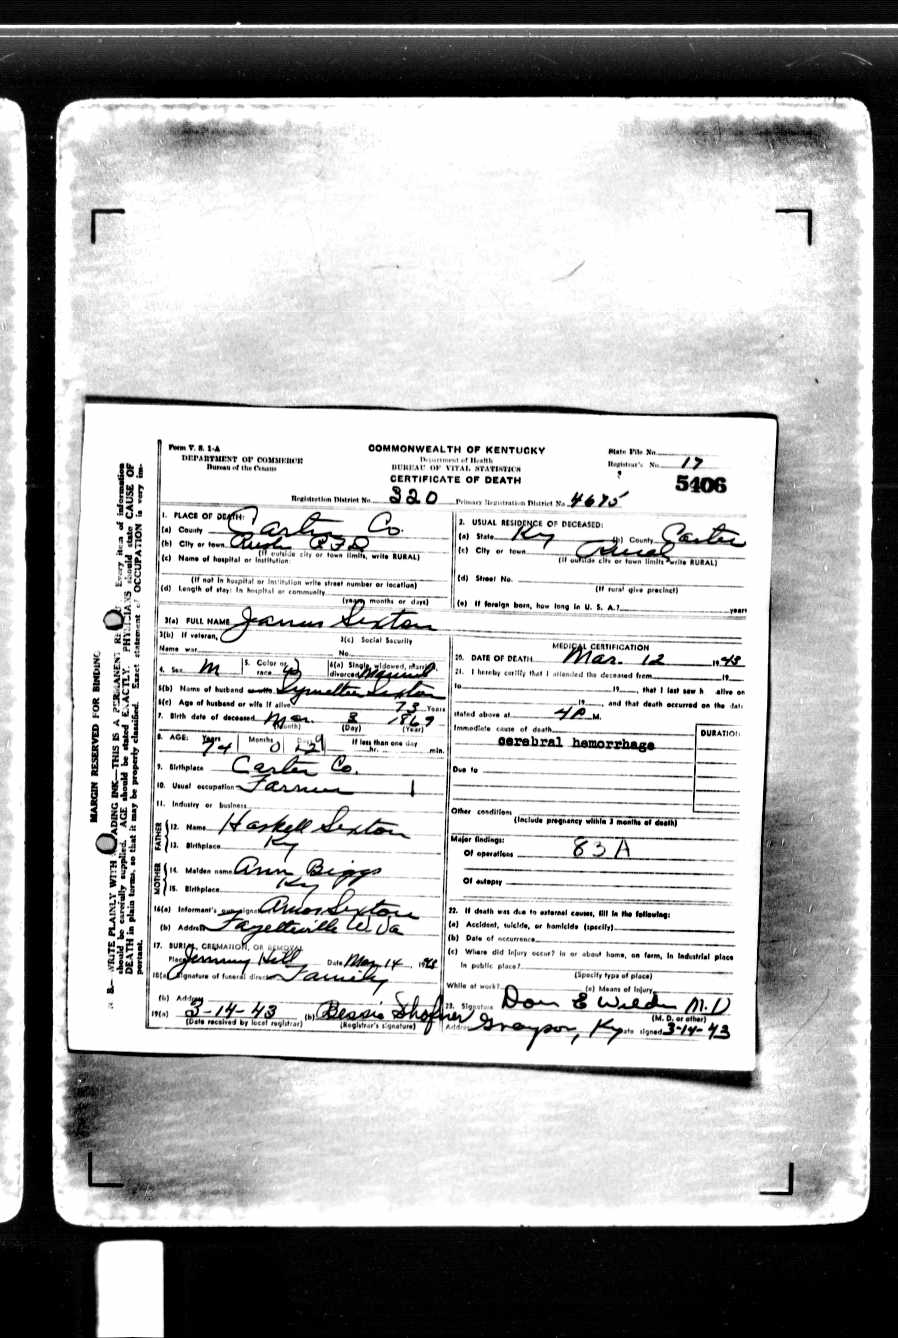 Form V. S. 1-A
DEPARTMENT OF COMMERCE
Bureau of the Census
COMMONWEALTH OF KENTUCKY
Department of Health
BUREAU OF VITAL STATISTICS
CERTIFICATE OF DEATH
State File No.
Registrar's No. 17
5406
Registration District No. 320 Primary Registration District No. 4675
1. PLACE OF DEATH:
(a) County Carter Co.
(b) City or town Rush RFD
(If outside city or town limits, write RURAL)
(c) Name of hospital or institution:
(If not in hospital or institution write street number or location)
(d) Length of stay: In hospital or community
(years, months or days)
2. USUAL RESIDENCE OF DECEASED:
(a) State Ky (b) County Carter
(c) City or town Rural
(If outside city or town limits write RURAL)
(d) Street No.
(If rural give precinct)
(e) If foreign born, how long in U. S. A.? years
3(a) FULL NAME James Sexton
3(b) If veteran,
Name war
3(c) Social Security
No.
4. Sex M
5. Color or race W
6(a) Single, widowed, married, divorced Married
6(b) Name of husband or wife Sexton
6(c) Age of husband or wife if alive 73 Years
7. Birth date of deceased Mar. 3 1869
(Month) (Day) (Year)
8. AGE: Years 74 Months 0 Days 9 If less than one day hr. min.
9. Birthplace Carter Co.
10. Usual occupation Farmer
11. Industry or business
FATHER
12. Name Haskell Sexton
13. Birthplace Ky
MOTHER
14. Maiden name Ann Biggs
15. Birthplace Ky
16(a) Informant's own signature Amos Sexton
(b) Address Fayetteville W. Va
17. BURIAL, CREMATION, OR REMOVAL
Place Hill Date Mar 14, 1943
18(a) Signature of funeral director Family
(b) Address
19(a) 3-14-43 (b) Bessie Shofner
(Date received by local registrar) (Registrar's signature)
MEDICAL CERTIFICATION
20. DATE OF DEATH Mar. 12 1943
21. I hereby certify that I attended the deceased from 19
to 19, that I last saw h alive on
19, and that death occurred on the date
stated above at 4A M.
Immediate cause of death
cerebral hemorrhage
DURATION
Due to
Other conditions
(Include pregnancy within 3 months of death)
Major findings:
Of operations 83A
Of autopsy
22. If death was due to external causes, fill in the following:
(a) Accident, suicide, or homicide (specify)
(b) Date of occurrence
(c) Where did injury occur? In or about home, on farm, in industrial place
in public place?
(Specify type of place)
While at work? (e) Means of injury
23. Signature Don E Wilder M.D
(M. D. or other)
Address Grayson, Ky Date signed 3-14-43
MARGIN RESERVED FOR BINDING
N. B.—WRITE PLAINLY WITH UNFADING INK—THIS IS A PERMANENT Every item of information
should be carefully supplied. AGE should be stated EXACTLY. PHYSICIANS should state CAUSE OF
DEATH in plain terms, so that it may be properly classified. Exact statement of OCCUPATION is very im-
portant.